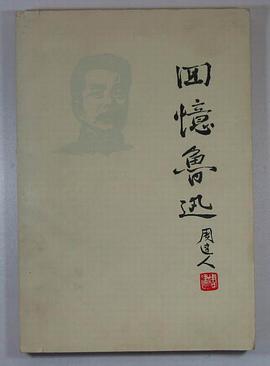 回憶魯迅
周建人